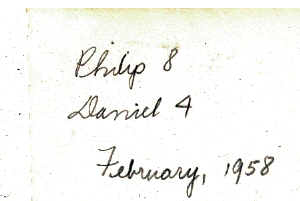 Philip 8
Daniel 4
February, 1958